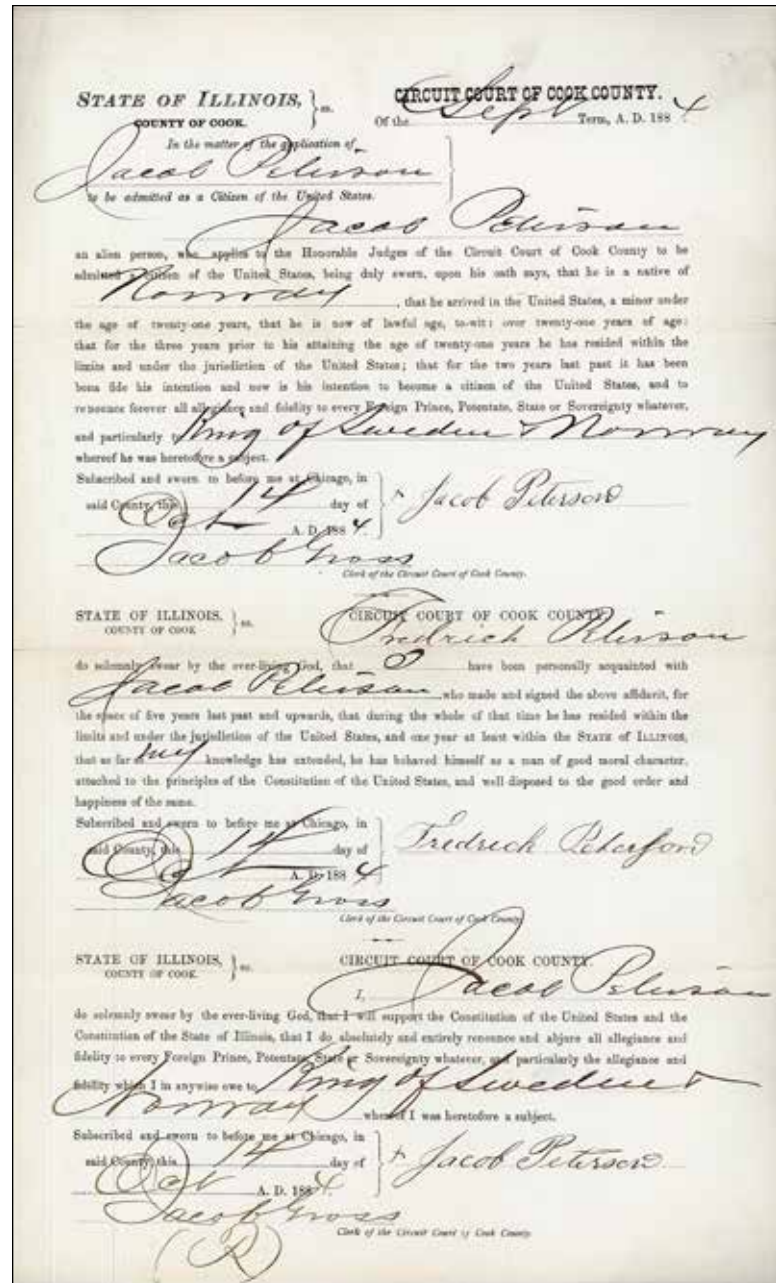 STATE OF ILLINOIS, } ss.
COUNTY OF COOK.
CIRCUIT COURT OF COOK COUNTY.
Of the Sept Term, A. D. 1884
In the matter of the application of
Jacob Peterson
to be admitted as a Citizen of the United States.
Jacob Peterson
an alien person, who applies to the Honorable Judges of the Circuit Court of Cook County to be
admitted a citizen of the United States, being duly sworn, upon his oath says, that he is a native of
Norway, that he arrived in the United States, a minor under
the age of twenty-one years, that he is now of lawful age, to-wit: over twenty-one years of age:
that for the three years prior to his attaining the age of twenty-one years he has resided within the
limits and under the jurisdiction of the United States; that for the two years last past it has been
bona fide his intention and now is his intention to become a citizen of the United States, and to
renounce forever all allegiance and fidelity to every Foreign Prince, Potentate, State or Sovereignty whatever,
and particularly King of Sweden & Norway
whereof he was heretofore a subject.
Subscribed and sworn to before me at Chicago, in
said County, this 14 day of
Oct A. D. 1884.
x Jacob Peterson
Jacob Gross
Clerk of the Circuit Court of Cook County.
STATE OF ILLINOIS, } ss.
COUNTY OF COOK
CIRCUIT COURT OF COOK COUNTY.
Fredrich Peterson
do solemnly swear by the ever-living God, that I have been personally acquainted with
Jacob Peterson who made and signed the above affidavit, for
the space of five years last past and upwards, that during the whole of that time he has resided within the
limits and under the jurisdiction of the United States, and one year at least within the STATE OF ILLINOIS,
that as far my knowledge has extended, he has behaved himself as a man of good moral character,
attached to the principles of the Constitution of the United States, and well disposed to the good order and
happiness of the same.
Subscribed and sworn to before me at Chicago, in
said County, this 14 day of
Oct A. D. 1884
Fredrech Peterson
Jacob Gross
Clerk of the Circuit Court of Cook County
STATE OF ILLINOIS, } ss.
COUNTY OF COOK.
CIRCUIT COURT OF COOK COUNTY.
I, Jacob Peterson
do solemnly swear by the ever-living God, that I will support the Constitution of the United States and the
Constitution of the State of Illinois, that I do absolutely and entirely renounce and abjure all allegiance and
fidelity to every Foreign Prince, Potentate, State or Sovereignty whatever, and particularly the allegiance and
fidelity which I in anywise owe to King of Sweden &
Norway whereof I was heretofore a subject.
Subscribed and sworn to before me at Chicago, in
said County, this 14 day of
Oct A. D. 1884
x Jacob Peterson
Jacob Gross
Clerk of the Circuit Court of Cook County.
(R)